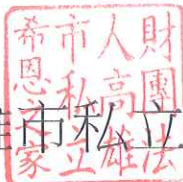 財團法
人高雄
市私立
希恩之家
市私立